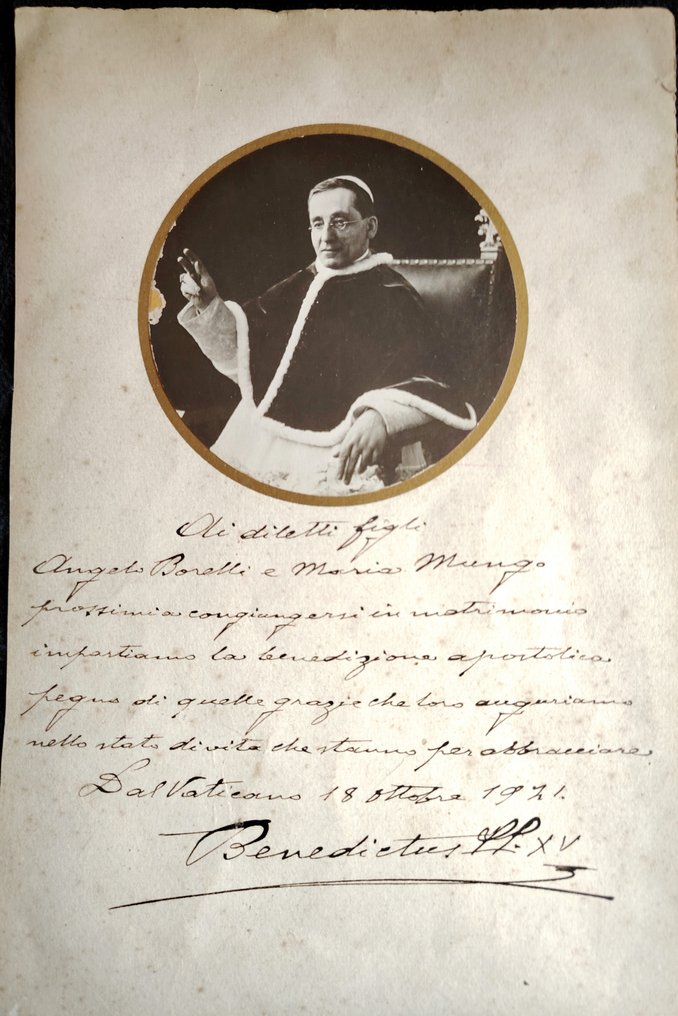 Ai diletti figli
Angelo Borelli e Maria Mungo
prossimi a congiungersi in matrimonio
impartiamo la benedizione apostolica
pegno di quelle grazie che loro auguriamo
nello stato di vita che stanno per abbracciare.
Dal Vaticano 18 ottobre 1921.
Benedictus PP. XV